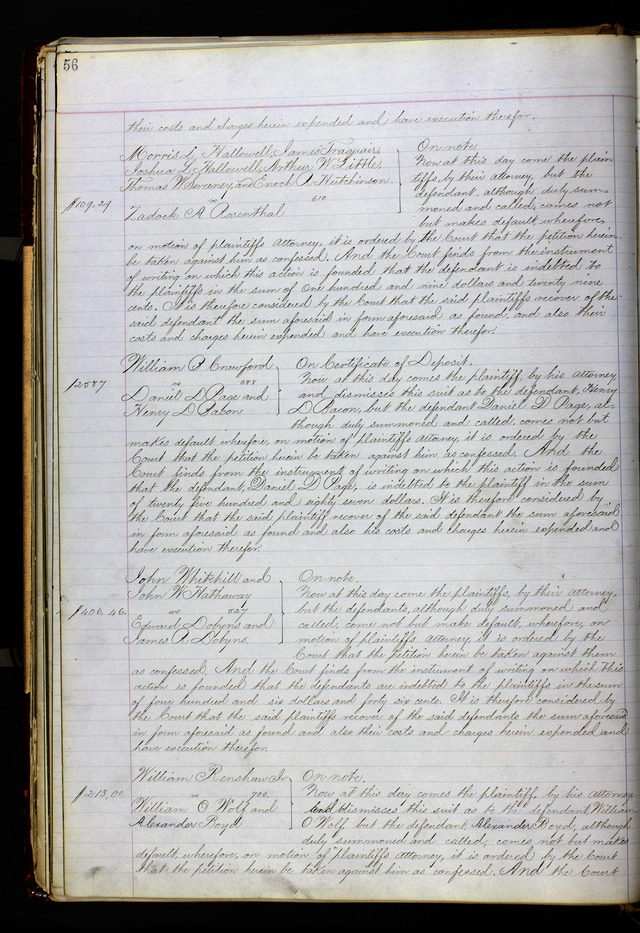 56
their costs and charges herein expended and have execution therefor.
Morris L Hallowell, James Traquair, On note
Joshua L Hallowell, Arthur W Little, Now at this day come the plain
Thomas W Sweeney, and Enoch R Hutchinson tiffs, by their attorney, but the
vs 610 defendant, although duly sum-
$109.29 Zadock A Rosenthal moned and called, comes not
but makes default wherefore,
on motion of plaintiffs attorney, it is ordered by the Court that the petition herein
be taken against him as confessed. And the Court finds from the instrument
of writing on which this action is founded that the defendant is indebted to
the plaintiffs in the sum of one hundred and nine dollars and twenty nine
cents. It is therefore considered by the Court that the said plaintiffs recover of the
said defendant the sum aforesaid in form aforesaid as found, and also their
costs and charges herein expended and have execution therefor.
William P Crawford On Certificate of Deposit.
vs 688 Now at this day comes the plaintiff, by his attorney
$2587 Daniel D Page and and dismisses this suit as to the defendant, Henry
Henry D Bacon D Bacon, but the defendant Daniel D Page, al-
though duly summoned and called, comes not but
makes default wherefore, on motion of plaintiffs attorney, it is ordered by the
Court that the petition herein be taken against him as confessed. And the
Court finds from the instrument of writing on which this action is founded
that the defendant, Daniel D Page, is indebted to the plaintiff in the sum
of twenty five hundred and eighty seven dollars. It is therefore considered by
the Court that the said plaintiff recover of the said defendant the sum aforesaid
in form aforesaid as found and also his costs and charges herein expended and
have execution therefor.
John Whitehill and On note.
John W Hathaway Now at this day come the plaintiffs, by their attorney,
vs 627 but the defendants, although duly summoned and
$406.46. Edward Dobyns and called, come not but make default, wherefore, on
James P Dobyns. motion of plaintiffs attorney, it is ordered by the
Court that the petition herein be taken against them
as confessed. And the Court finds from the instrument of writing on which this
action is founded that the defendants are indebted to the plaintiffs in the sum
of four hundred and six dollars and forty six cents. It is therefore considered by
the Court that the said plaintiffs recover of the said defendants the sum aforesaid
in form aforesaid as found and also their costs and charges herein expended and
have execution therefor.
William Renshaw Jr On note.
$213,00 vs 700. Now at this day comes the plaintiff by his attorney
William O Wolf and and dismisses this suit as to the defendant, William
Alexander Boyd O Wolf but the defendant Alexander Boyd, although
duly summoned and called, comes not but makes
default, wherefore, on motion of plaintiffs attorney, it is ordered by the Court
that the petition herein be taken against him as confessed. And the Court